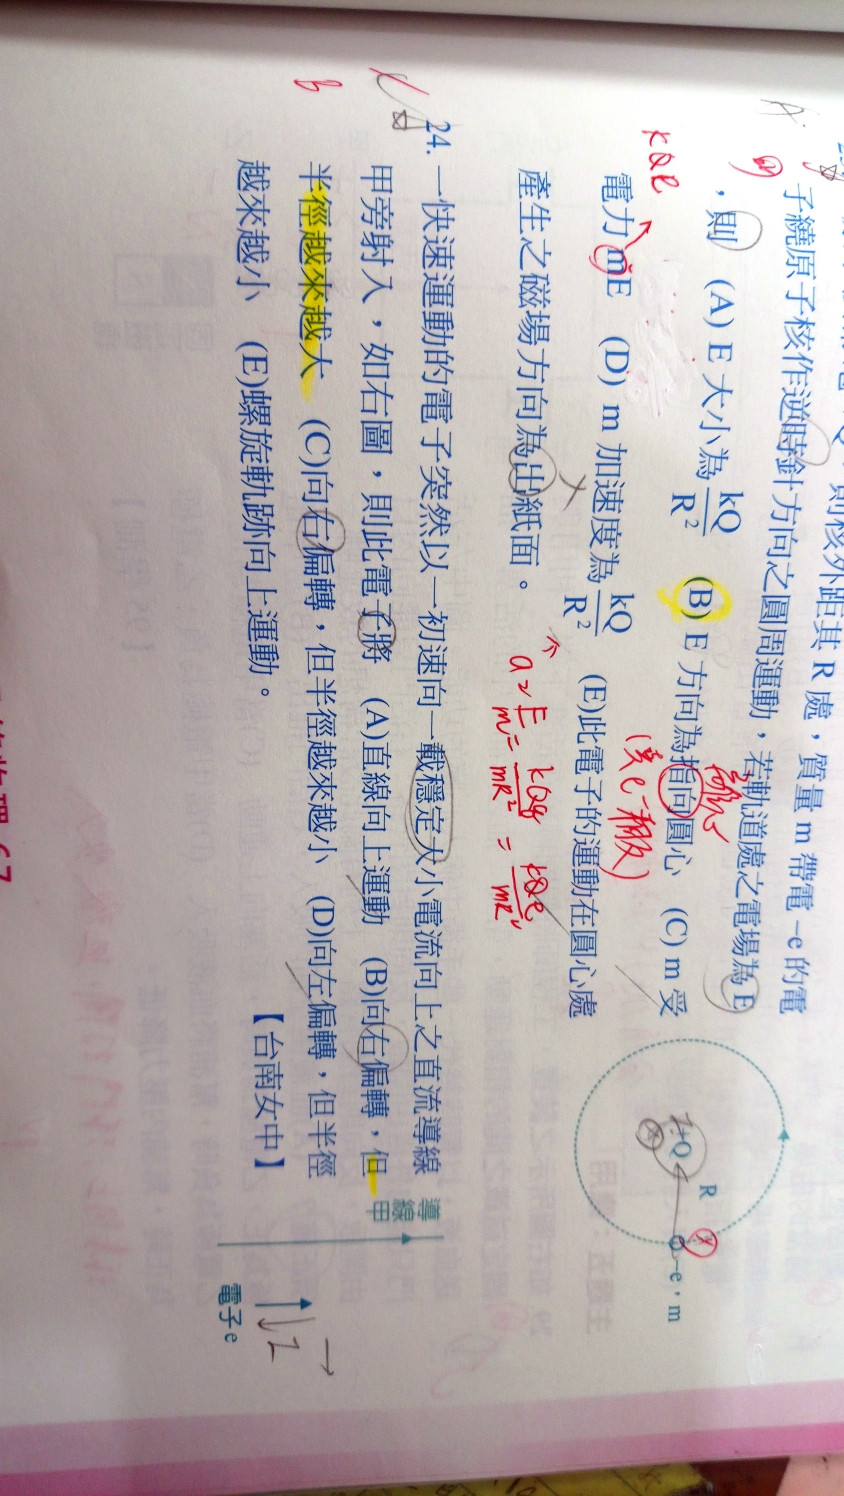 子繞原子核作逆時針方向之圓周運動，若軌道處之電場為 E
，則 (A) E 大小為 kQ/R² (B) E 方向為指向圓心 (C) m 受
電力 mE (D) m 加速度為 kQ/R² (E)此電子的運動在圓心處
產生之磁場方向為出紙面。
kQe
(負e-相反)
a = F/m = kQq/mR² = kQe/mR²
+Q
R
-e，m
24. 一快速運動的電子突然以一初速向一載穩定大小電流向上之直流導線
甲旁射入，如右圖，則此電子將 (A)直線向上運動 (B)向右偏轉，但
半徑越來越大 (C)向右偏轉，但半徑越來越小 (D)向左偏轉，但半徑
越來越小 (E)螺旋軌跡向上運動。 【台南女中】
導線甲
電子e
I
B